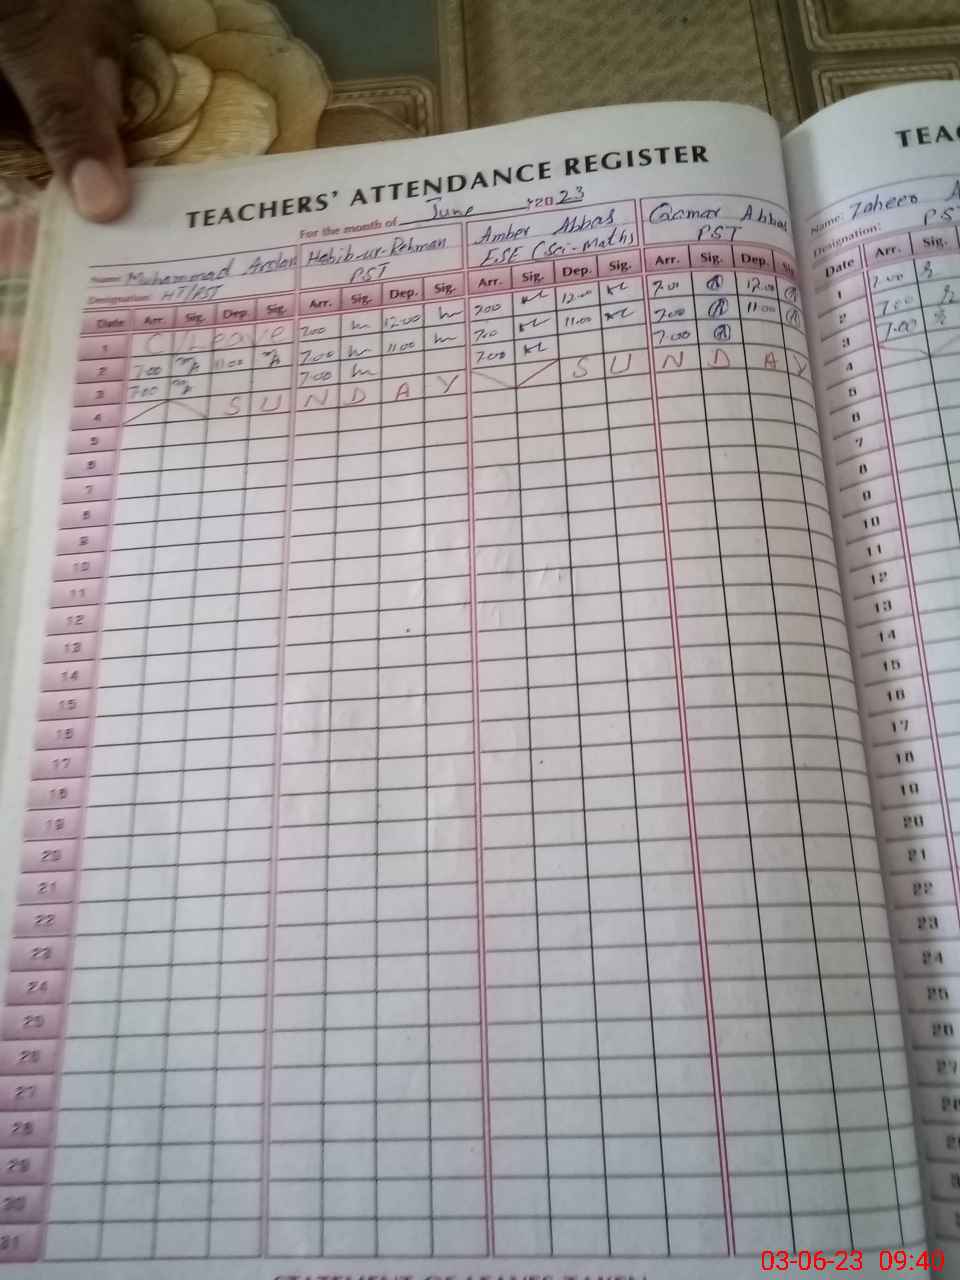 TEACHERS' ATTENDANCE REGISTER
For the month of June 2023
Name: Muhammad Arslan Habib-ur-Rehman Amber Abbas Qamar Abbas
Designation: HT/PST PST ESE (Sci-Math) PST
Date Arr. Sig. Dep. Sig. Arr. Sig. Dep. Sig. Arr. Sig. Dep. Sig. Arr. Sig. Dep. Sig.
1 C/Leave 7:00 12:00 7:00 12:00 7:00 12:00
2 7:00 11:00 7:00 11:00 7:00 11:00 7:00 11:00
3 7:00 7:00 7:00 7:00
4 S U N D A Y S U N D A Y
5
6
7
8
9
10
11
12
13
14
15
16
17
18
19
20
21
22
23
24
25
26
27
28
29
30
31
STATEMENT OF LEAVES TAKEN
TEAC
Name: Zaheer A
Designation: PST
Date Arr. Sig.
1 7:00
2 7:00
3 7:00
4
5
6
7
8
9
10
11
12
13
14
15
16
17
18
19
20
21
22
23
24
25
26
27
03-06-23 09:40